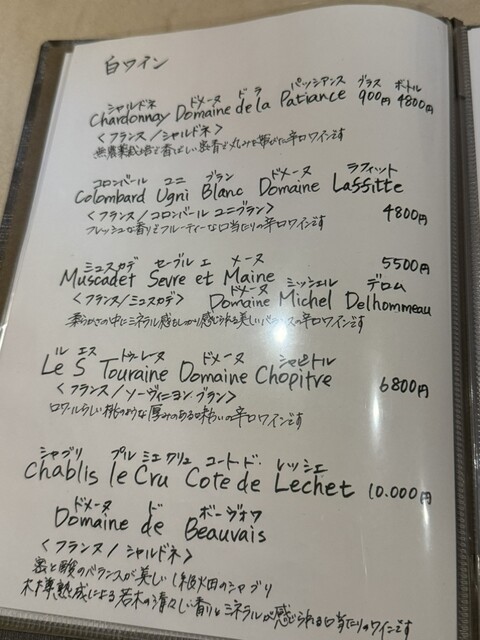 白ワイン
シャルドネ ドメーヌ ド ラ パッシアンス グラス ボトル
Chardonnay Domaine de la Patiance 900円 4800円
<フランス/シャルドネ>
無農薬栽培で香ばしい 丸みを帯びた辛口ワインです
コロンバール ユニ ブラン ドメーヌ ラフィット
Colombard Ugni Blanc Domaine Laffitte
4800円
<フランス/コロンバール ユニブラン>
フレッシュな香りとフルーティーな口当たりの辛口ワインです
5500円
ミュスカデ セーブル エ メーヌ
Muscadet Sevre et Maine
ドメーヌ ミッシェル デロム
<フランス/ミュスカデ> Domaine Michel Delhommeau
柔らかさの中にミネラル感もしっかり感じられる美しいバランスの辛口ワインです
ル エス トゥレーヌ ドメーヌ シャピトル
Le S Touraine Domaine Chopitre 6800円
<フランス/ソーヴィニヨンブラン>
ロワールらしい桃のような厚みのある味わいの辛口ワインです
シャブリ プルミエ クリュ コート・ド・レッシェ
Chablis le Cru Cote de Lechet 10.000円
ドメーヌ ド ボーヴォワ
Domaine de Beauvais
<フランス/シャルドネ>
蜜と酸のバランスが美しい1級畑のシャブリ
木樽熟成による若木の清々しい香りとミネラルが感じられる口当たりのワインです